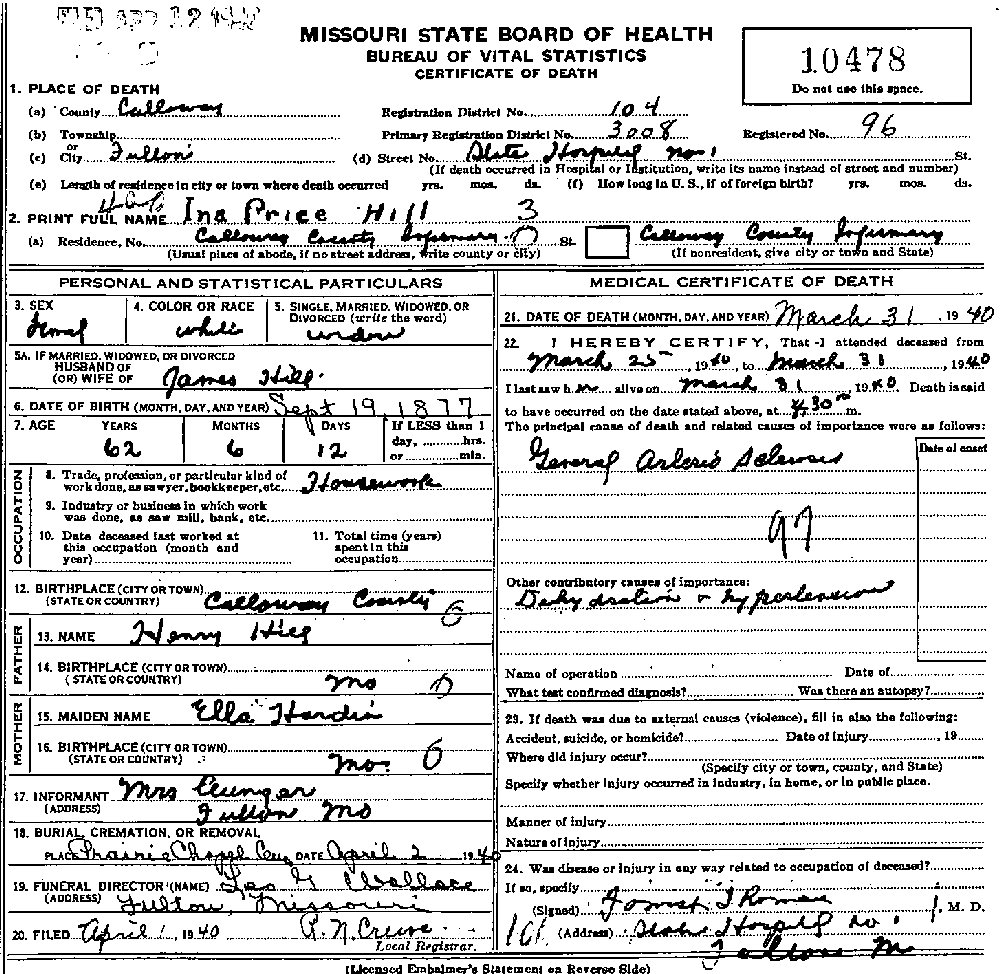 MISSOURI STATE BOARD OF HEALTH
BUREAU OF VITAL STATISTICS
CERTIFICATE OF DEATH
10478
Do not use this space.
1. PLACE OF DEATH
(a) County Calloway Registration District No. 104
(b) Township Primary Registration District No. 3008 Registered No. 96
or
(c) City Fulton (d) Street No. State Hospital No 1 St.
(If death occurred in Hospital or Institution, write its name instead of street and number)
(e) Length of residence in city or town where death occurred yrs. mos. ds. (f) How long in U. S., if of foreign birth? yrs. mos. ds.
2. PRINT FULL NAME Ina Price Hill 3
(a) Residence, No. Calloway County Infirmary 0 St. Calloway County Infirmary
(Usual place of abode, if no street address, write county or city) (If nonresident, give city or town and State)
PERSONAL AND STATISTICAL PARTICULARS
3. SEX 4. COLOR OR RACE 5. SINGLE, MARRIED, WIDOWED, OR
DIVORCED (write the word)
Femal white widow
5A. IF MARRIED, WIDOWED, OR DIVORCED
HUSBAND OF
(OR) WIFE OF James Hill
6. DATE OF BIRTH (MONTH, DAY, AND YEAR) Sept 19, 1877
7. AGE YEARS MONTHS DAYS If LESS than 1
day, hrs.
or min.
62 6 12
OCCUPATION
8. Trade, profession, or particular kind of
work done, as sawyer, bookkeeper, etc. Housework
9. Industry or business in which work
was done, as saw mill, bank, etc.
10. Date deceased last worked at
this occupation (month and
year)
11. Total time (years)
spent in this
occupation
12. BIRTHPLACE (CITY OR TOWN)
(STATE OR COUNTRY) Calloway County
FATHER
13. NAME Henry Hill
14. BIRTHPLACE (CITY OR TOWN)
(STATE OR COUNTRY) Mo 0
MOTHER
15. MAIDEN NAME Ella Hardin
16. BIRTHPLACE (CITY OR TOWN)
(STATE OR COUNTRY) Mo. 0
17. INFORMANT Mrs
(ADDRESS) Fulton Mo
18. BURIAL, CREMATION, OR REMOVAL
PLACE Prairie Chapel Cem DATE April 2 1940
19. FUNERAL DIRECTOR (NAME) Wallace
(ADDRESS) Fulton, Missouri
20. FILED April 1, 1940 R. N. Crews
Local Registrar.
MEDICAL CERTIFICATE OF DEATH
21. DATE OF DEATH (MONTH, DAY, AND YEAR) March 31, 1940
22. I HEREBY CERTIFY, That I attended deceased from
March 25, 1940, to March 31, 1940
I last saw h er alive on March 31, 1940. Death is said
to have occurred on the date stated above, at 430 m.
The principal cause of death and related causes of importance were as follows:
Date of onset
General Arterio Sclerosis
97
Other contributory causes of importance:
Dehydration & hypertension
Name of operation Date of
What test confirmed diagnosis? Was there an autopsy?
23. If death was due to external causes (violence), fill in also the following:
Accident, suicide, or homicide? Date of injury , 19
Where did injury occur?
(Specify city or town, county, and State)
Specify whether injury occurred in industry, in home, or in public place.
Manner of injury
Nature of injury
24. Was disease or injury in any way related to occupation of deceased?
If so, specify
(Signed) , M. D.
(Address) State Hospital No 1
Fulton Mo
(Licensed Embalmer's Statement on Reverse Side)